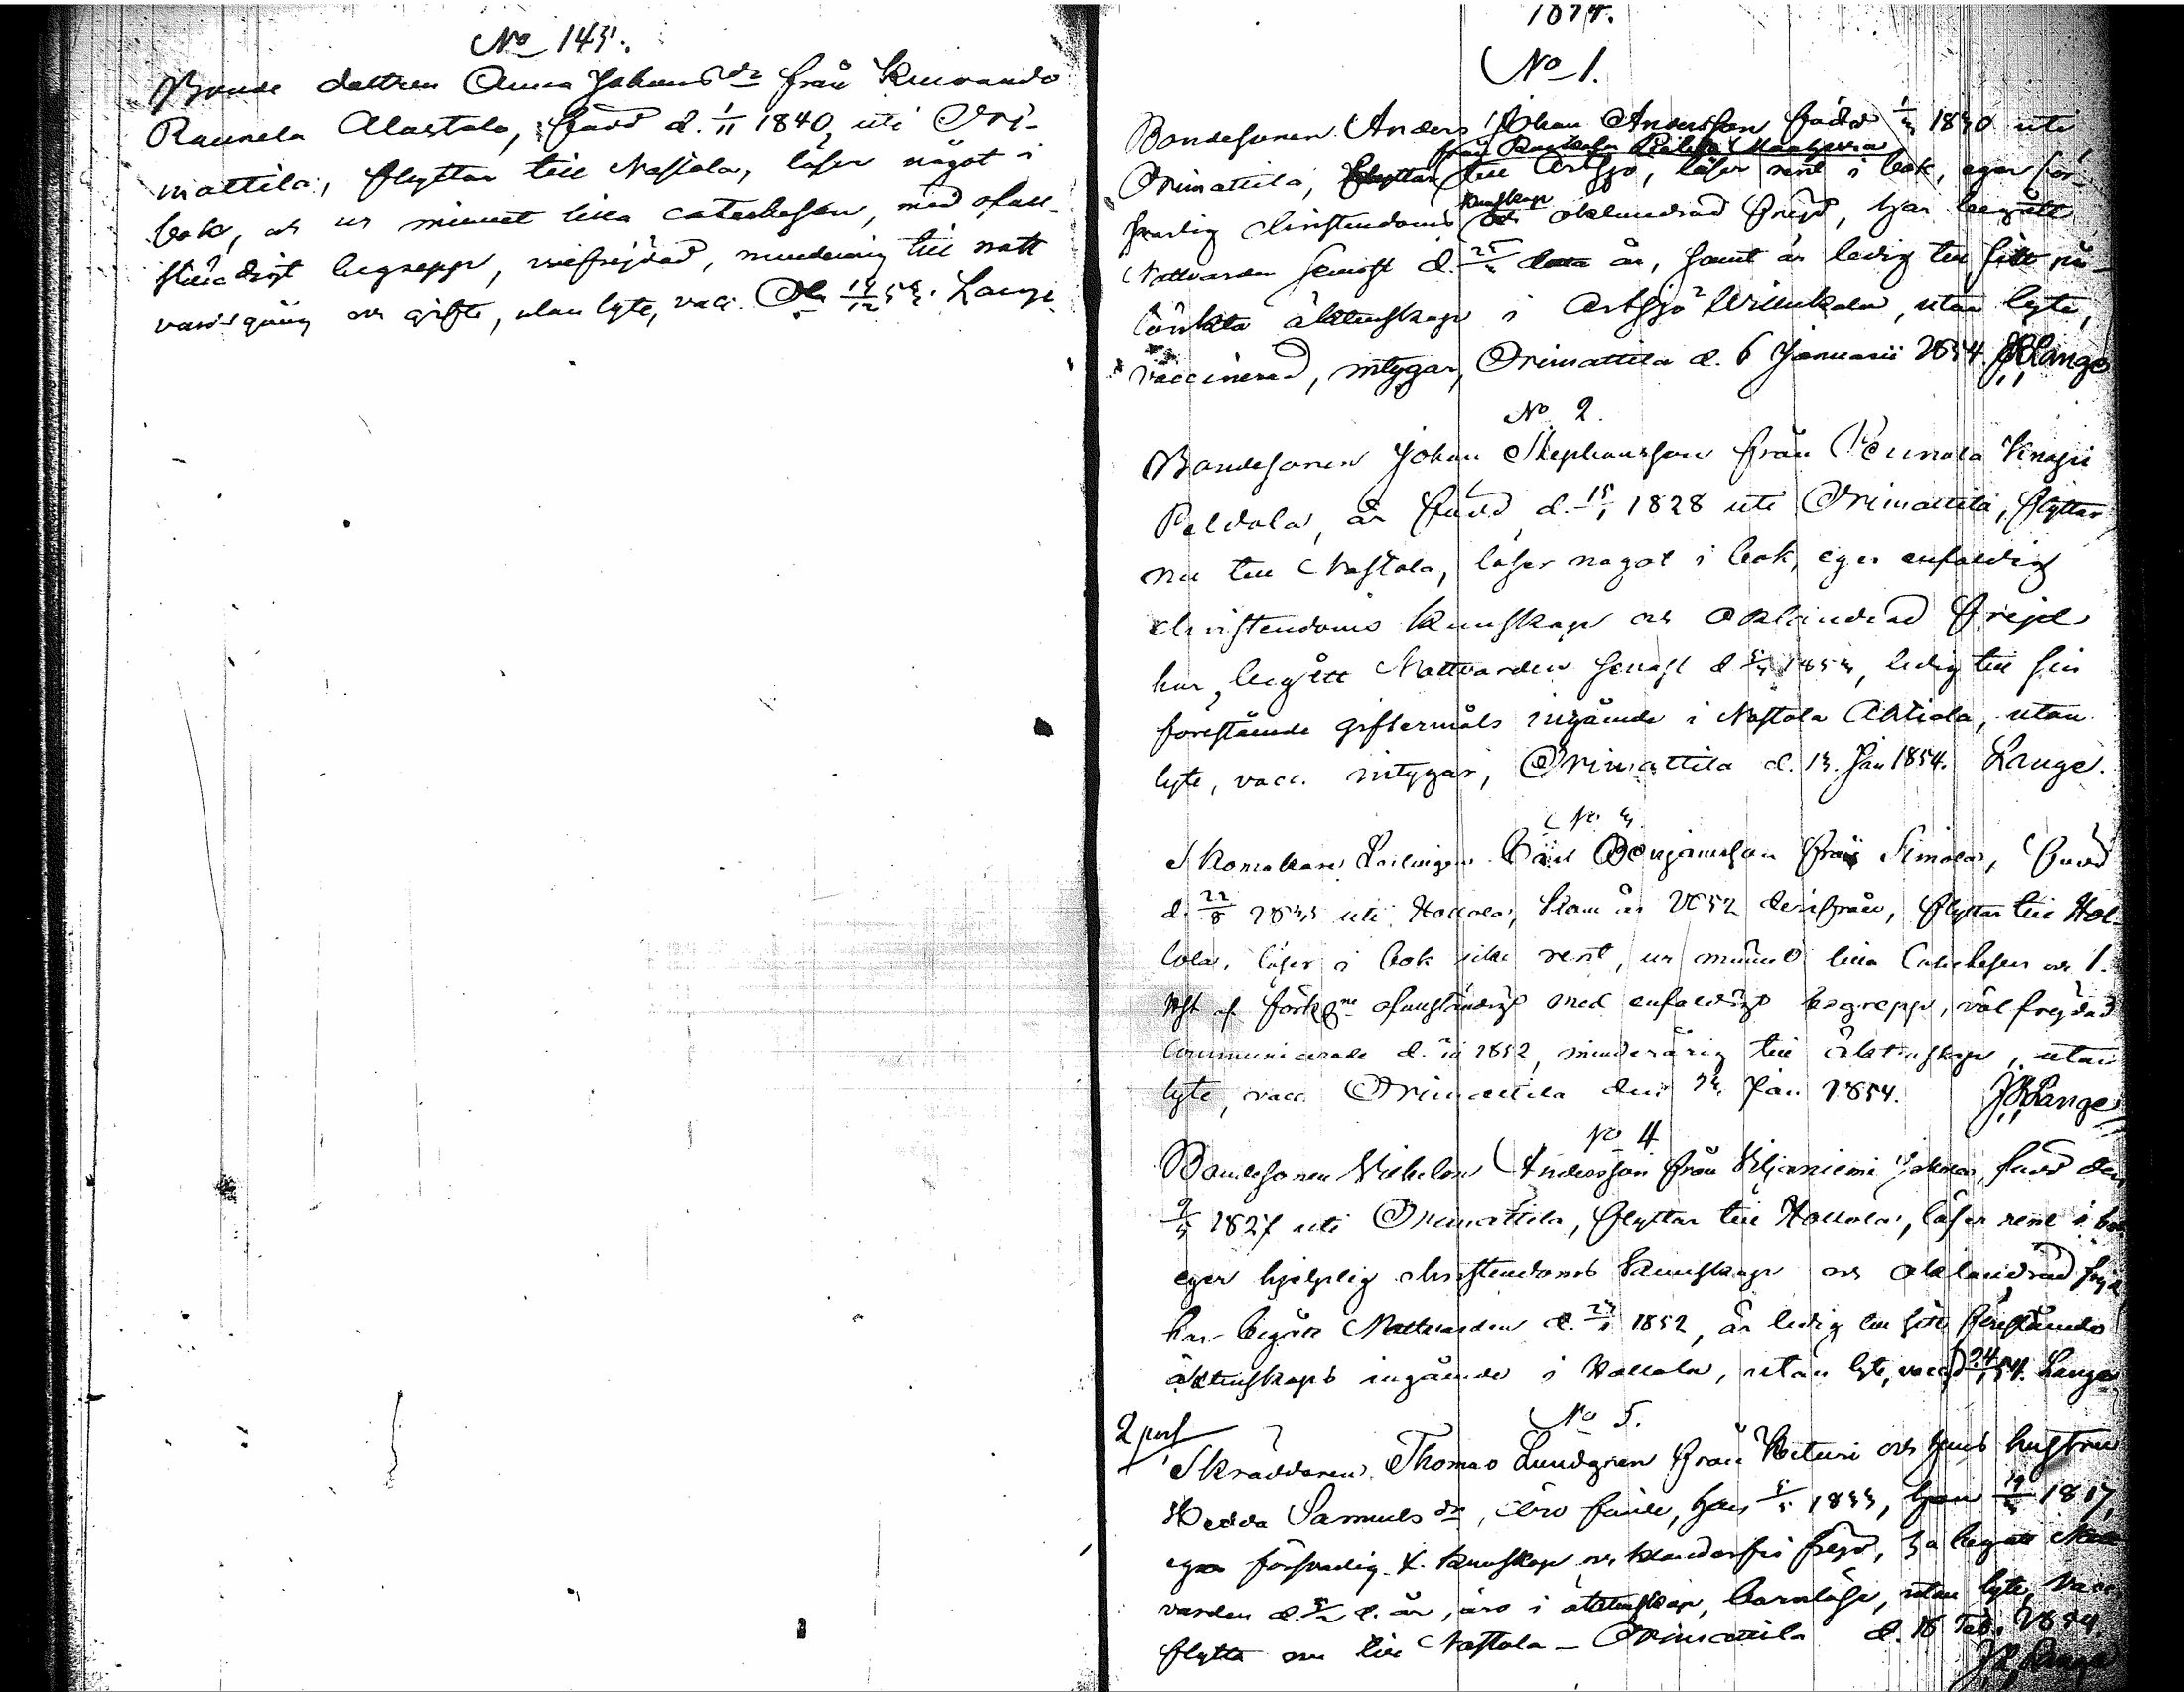 No 143.
Bonde dottren Anna Johans dr från Kuivando
Raunela Alastalo, född d. 1/11 1840, uti Ori-
mattila, flyttar till Nastola, läser något i
bok, och ur minnet lilla catechesen, med ofull-
ständigt begrepp, välfrejdad, minderårig till natt
vards gång och gifte, utan lyte, vacc. Ola 13/12 53. Lange
1854.
No 1.
Bondesonen Anders Johan Andersson född 1830 uti
från
Orimattila, till Artsjö, läser rent i bok, eger för-
kunskap
svarlig christendoms och oklandrad frejd, har begått
Nattvarden senast d. år, samt är ledig till sitt på-
tänkta äktenskap i Artsjö Willikala, utan lyte,
vaccinerad, intygar, Orimattila d. 6 Januarii 1854. JRLange
No 2.
Bondesonen Johan Stephansson från Pennala Knapii
Peldola, är född d. 15/1 1828 uti Orimattila, flyttar
nu till Nastola, läser något i bok, eger enfaldig
christendoms kunskap och oklandrad frejd
har begått Nattvarden senast d. 1853, ledig till sin
förestående giftermåls ingående i Nastola Ahtiala, utan
lyte, vacc. intygar, Orimattila d. 13. Jan 1854. Lange.
No 3
Skomakare Lärlingen Carl Benjamsson från Simola, född
d. 22/8 1833 uti Hollola, kom år 1852 derifrån, flyttar till Hol-
lola, läser i bok icke rent, ur minnet lilla Catechesen och 1.
af förkl:ne ofullständigt med enfaldigt begrepp, välfrejdad
communicerade d. 1852, minderårig till äktenskap, utan
lyte, vacc. Orimattila den 13 Jan 1854. JRLange
No 4
Bondesonen Vilhelm Andersson från Viljaniemi Jokela, född den
9/5 1827 uti Orimattila, flyttar till Hollola, läser rent i bok
eger hjelplig christendoms kunskap och oklandrad frejd,
har begått Nattvarden d. 1852, är ledig till sitt förestående
äktenskaps ingående i Hollola, utan lyte, vacc. 24/1 54. Lange
No 5.
2 pers
Skräddaren Thomas Lundgren från Heituri och hans hustru
Hedda Samuels dr, äro födde, han 5/5 1833, hon 1817,
ega försvarlig X. kunskap och klanderfri frejd, ha begått Natt
varden d. d. år, äro i äktenskap, barnlöse, utan lyte, vacc.
flytta nu till Nastola - Orimattila d. 18 Feb. 1854.
JRLange